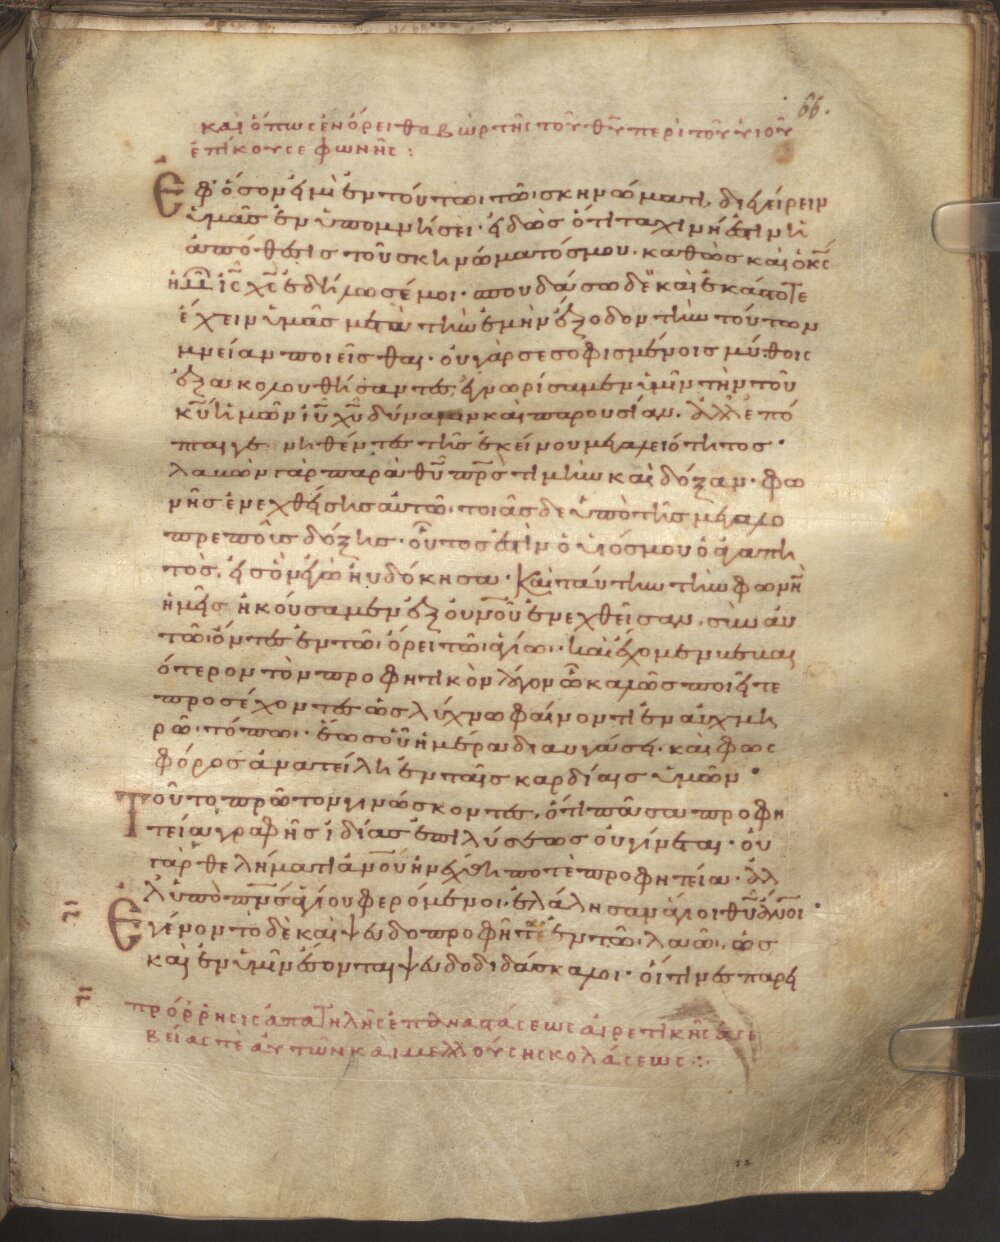 66.
καὶ ὅπως ἐν ὄρει θαβὼρ τῆς τοῦ θυ περὶ τοῦ υἱοῦ
ἐπίκουσε φωνῆς :
Εφ ὅσον εἰμὶ ἐν τούτωι τῶι σκηνώματι, διεγείρειν
ὑμᾶς ἐν ὑπομνήσει· εἰδὼς ὅτι ταχινή ἐστιν ἡ
ἀπόθεσις τοῦ σκηνώματός μου. καθὼς καὶ ὁ κς
ἡμῶν ις χς ἐδήλωσέ μοι· σπουδάσω δὲ καὶ ἑκάποτε
ἔχειν ὑμᾶς μετὰ τὴν ἐμὴν ἔξοδον τὴν τούτων
μνείαν ποιεῖσθαι· οὐ γὰρ σεσοφισμένοις μύθοις
ἐξακολουθήσαντες, ἐγνωρίσαμεν ὑμῖν τὴν τοῦ
κυ ἡμῶν ιυ χυ δύναμιν καὶ παρουσίαν. ἀλλ επό
πται γενηθέντες τῆς ἐκείνου μεγαλειότητος·
λαβὼν γὰρ παρὰ θυ πρς τιμὴν καὶ δόξαν· φω
νῆς ἐνεχθείσης αὐτῶ. τοιᾶσδε ὑπὸ τῆς μεγαλο
πρεποῖς δόξης· οὗτος ἐστὶν ὁ υἱός μου ὁ ἀγαπη
τὸς, εἰς ὃν ἐγὼ ηυδόκησα· Καὶ ταύτην τὴν φωνὴ
ἡμεῖς ἠκούσαμεν ἐξ ουνοῦ ἐνεχθεῖσαν, σὺν αυ
τῶ ὄντες ἐν τῶι ὄρει τῶι ἁγίωι. Καὶ ἔχομεν βεβαι
ότερον τὸν προφητικὸν λόγον ὧ καλῶς ποιεῖτε
προσέχοντες ὡς λύχνω φαίνοντι ἐν αὐχμη
ρῶ τόπωι. ἕως οὗ ἡμέρα διαυγάσει. καὶ φωσ
φόρος ἀνατείλη ἐν ταῖς καρδίαις ὑμῶν·
Τοῦτο πρῶτον γινώσκοντες, ὅτι πᾶσα προφη
τεία γραφῆς ἰδίας ἐπιλύσεως οὐ γίνεται· οὐ
γὰρ θελήματι ανου ἠνέχθη ποτὲ προφητεία· ἀλ
λ ὑπὸ πνς ἁγίου φερόμενοι ἐλάλησαν ἅγιοι θυ ανοι·
Εγένοντο δὲ καὶ ψευδοπροφῆται ἐν τῶι λαῶι, ὡς
καὶ ἐν ὑμῖν ἔσονται ψευδοδιδάσκαλοι· οἵτινες παρει
πρόρρησις ἀπατηλῆς ἐπαναστάσεως αἱρετικῆς ἀσε
βείας τε αυτῶν καὶ μελλούσης κολάσεως :·